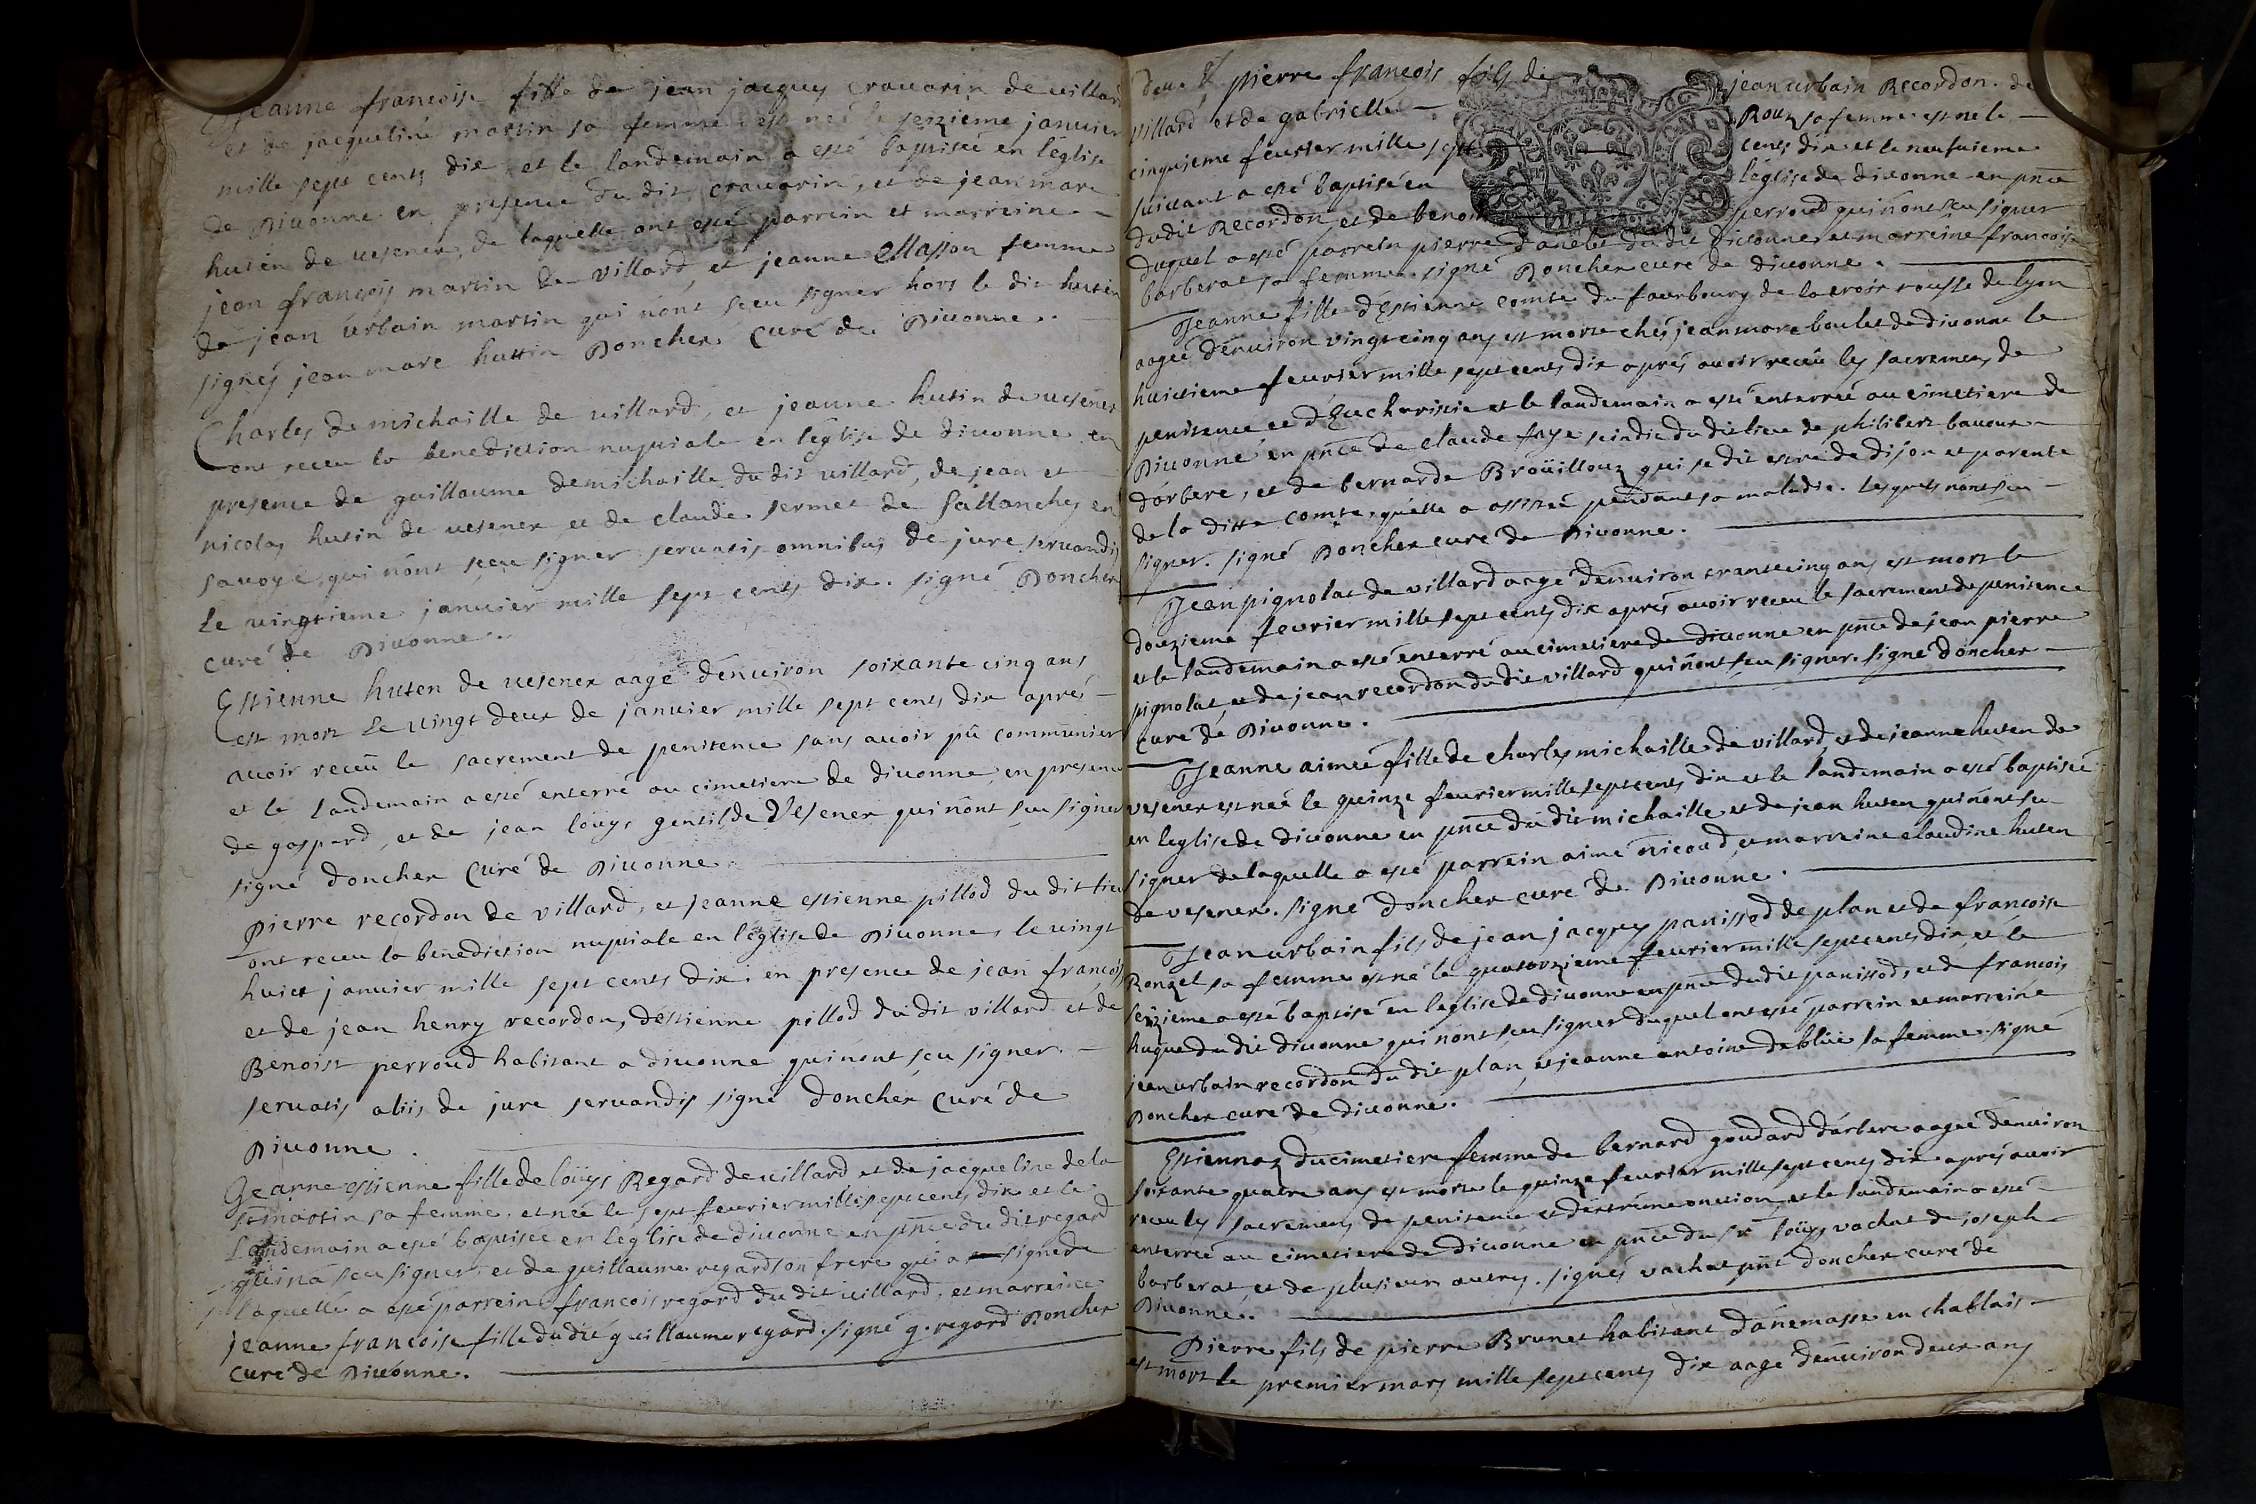 Jeanne francoise fille de jean jacques cravarin de villard
et de jacqueline martin sa femme est neé le seizieme janvier
mille sept cents dix et le landemain a esté baptiseé en léglise
de Divonne en presence du dit cravarin, et de jean marc
hutin de vesenex, de laquelle ont esté parrein et marreine
jean françois martin de villard et jeanne Masson femme
de jean urbain martin qui nont sceu signer hors le dit hutin
signés jean marc huttin Doncher curé de Divonne.
Charles de michaille de villard, et jeanne hutin de vesenex
ont receu la benediction nuptiale en léglise de divonne en
presence de guillaume demichaille du dit villard, de jean et
nicolas hutin de vesenex et de claude sermet de Sallanches en
savoye, qui nônt sceu signer servatis omnibus de jure servandis
le vingtieme janvier mille sept cents dix. signé Doncher
curé de Divonne.
Estienne huten de vesenex aagé dénviron soixante cinq ans
est mort le vingt deux de janvier mille sept cents dix aprés
avoir receu le sacrement de penitence sans avoir pû communier
et le landemain a esté enterré au cimetiere de divonne en presence
de gaspard, et de jean louys gentil de Vesenex qui nônt sçu signer
signé doncher curé de Divonne
Pierre recordon de villard, et jeanne estienne pillod du dit lieu
ont receu la benediction nuptiale en léglise de Divonne, le vingt
huict janvier mille sept cents dix. en presence de jean françois
et de jean henry recordon, déstienne pillod du dit villard et de
Benoist perroud habitant a divonne qui nont sçu signer.
servatis aliis de jure servandis signé doncher curé de
Divonne.
Jeanne estienne fille de loüys Regard de villard et de jacqueline de la
st martin sa femme. et neé le sept fevrier mille sept cents dix et le
Landemain a esté baptiseé en léglise de divonne en pnce du dit regard
qui na sceu signer, et de guillaume regard son frere qui a signé de
laquelle a esté parrein francois regard du dit villard, et marreine
jeanne francoise fille du dit guillaume regard. signé g. regard Doncher
curé de Divonne.
deux pierre françois fils de jean urbain Recordon. de
villard et de gabrielle Roux sa femme est né le
cinquieme fevrier mille sept cents dix et le neufvieme
suivant a esté baptisé en léglise de divonne en pnce
du dit Recordon et de benoit perroud qui nont sceu signer
duquel a esté parrein pierre du dit divonne et marreine francoise
barberat sa femme. signé Doncher curé de divonne.
Jeanne fille déstienne comte du fauxbourg de la croix rousse de lyon
aageé dénviron vingt cinq ans est morte chés jean marc boulet de divonne le
huictieme fevrier mille sept cents dix aprés avoir receu les sacremens de
penitence et dEucharistie et le landemain a esté enterreé au cimetiere de
Divonne en pnce de claude faye scindic du dit lieu de philibert
dárbere, et de bernarde Broüilloux qui se dit estre de dijon et parente
de la ditte comte, quélle a assisteé pendant sa maladie. lesquels nont sceu
signer. signé Doncher curé de Divonne.
Jean pignolat de villard aagé dénviron trante cinq ans est mort le
douzieme fevrier mille sept cents dix aprés avoir receu le sacrement de penitence
et le landemain a esté enterré au cimetiere de divonne en pnce de jean pierre
pignolat et de jean recordon du dit villard qui nônt sçu signer. signé doncher
curé de Divonne.
Jeanne aimeé fille de charles michaille de villard et de jeanne huten de
vesenex est neé le quinze fevrier mille sept cents dix et le landemain a esté baptiseé
en leglise de divonne en pnce du dit michaille et de jean huten qui nont sceu
signer de laquelle a esté parrein aimé nicoud et marreine claudine huten
de vesenex. signé doncher curé de Divonne.
Jean urbain fils de jean jacques panissod de plan et de francoise
Ronzel sa femme est né le quatorzieme fevrier mille sept cents dix, et le
seizieme a esté baptisé en leglise de divonne en pnce du dit panissod, et de francois
hugue du dit divonne qui nont sçu signer duquel ont esté parrein et marreine
jean urbain recordon du dit plan, et jeanne antoine deblüe sa femme. signé
Doncher curé de divonne.
Estiennaz ducimetiere femme de bernard goudard dárbere aageé dénviron
soixante quatre ans est morte le quinze fevrier mille sept cents dix aprés avoir
receu les sacremens de penitence et dextréme onction, et le landemain a esté
enterreé au cimetiere de divonne en pnce du sr loüys vachat de joseph
barberat, et de plusieurs autres. signés vachat pnt doncher curé de
Divonne.
Pierre fils de pierre Brunet habitant dánemasse en chablais
est mort le premier mars mille sept cents dix aagé dénviron deux ans